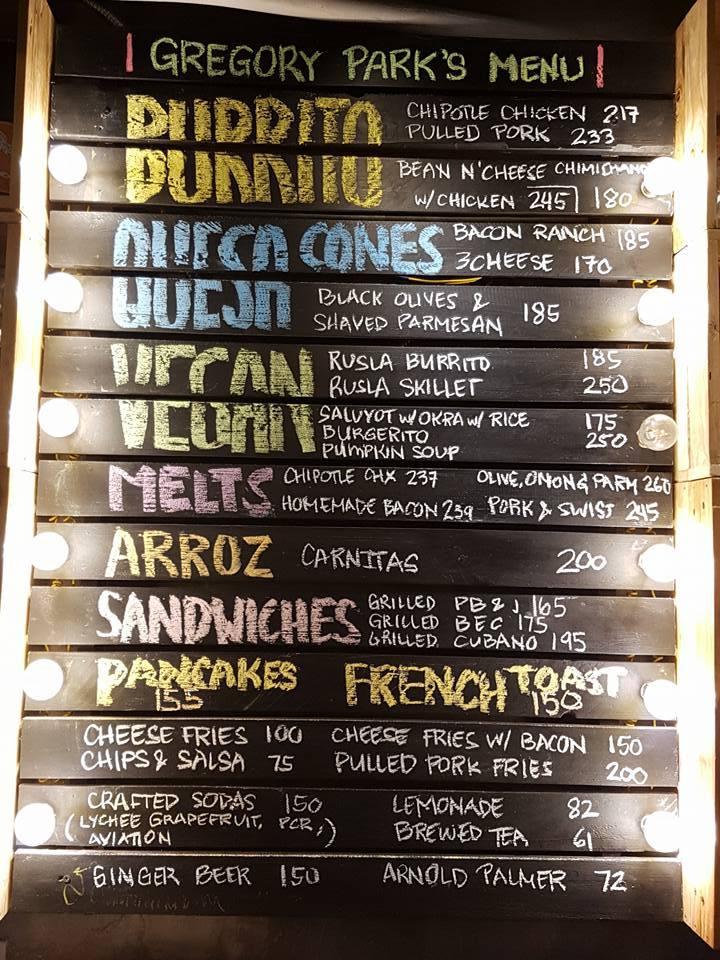 GREGORY PARK'S MENU
BURRITO
CHIPOTLE CHICKEN 217
PULLED PORK 233
BEAN N'CHEESE CHIMICHANGA
W/CHICKEN 245 180
QUESA CONES
BACON RANCH 185
3CHEESE 170
BLACK OLIVES &
SHAVED PARMESAN 185
VEGAN
RUSLA BURRITO 185
RUSLA SKILLET 250
SALUYOT W/OKRA W/ RICE 175
BURGERITO 250
PUMPKIN SOUP
MELTS
CHIPOTLE CHX 237 OLIVE, ONION & PARM 260
HOMEMADE BACON 239 PORK & SWISS 245
ARROZ CARNITAS 200
SANDWICHES
GRILLED PB & J 165
GRILLED BEC 175
GRILLED CUBANO 195
PANCAKES FRENCH TOAST
155 150
CHEESE FRIES 100 CHEESE FRIES W/ BACON 150
CHIPS & SALSA 75 PULLED PORK FRIES 200
CRAFTED SODAS 150 LEMONADE 82
(LYCHEE GRAPEFRUIT, PCR,)
AVIATION BREWED TEA 61
GINGER BEER 150 ARNOLD PALMER 72